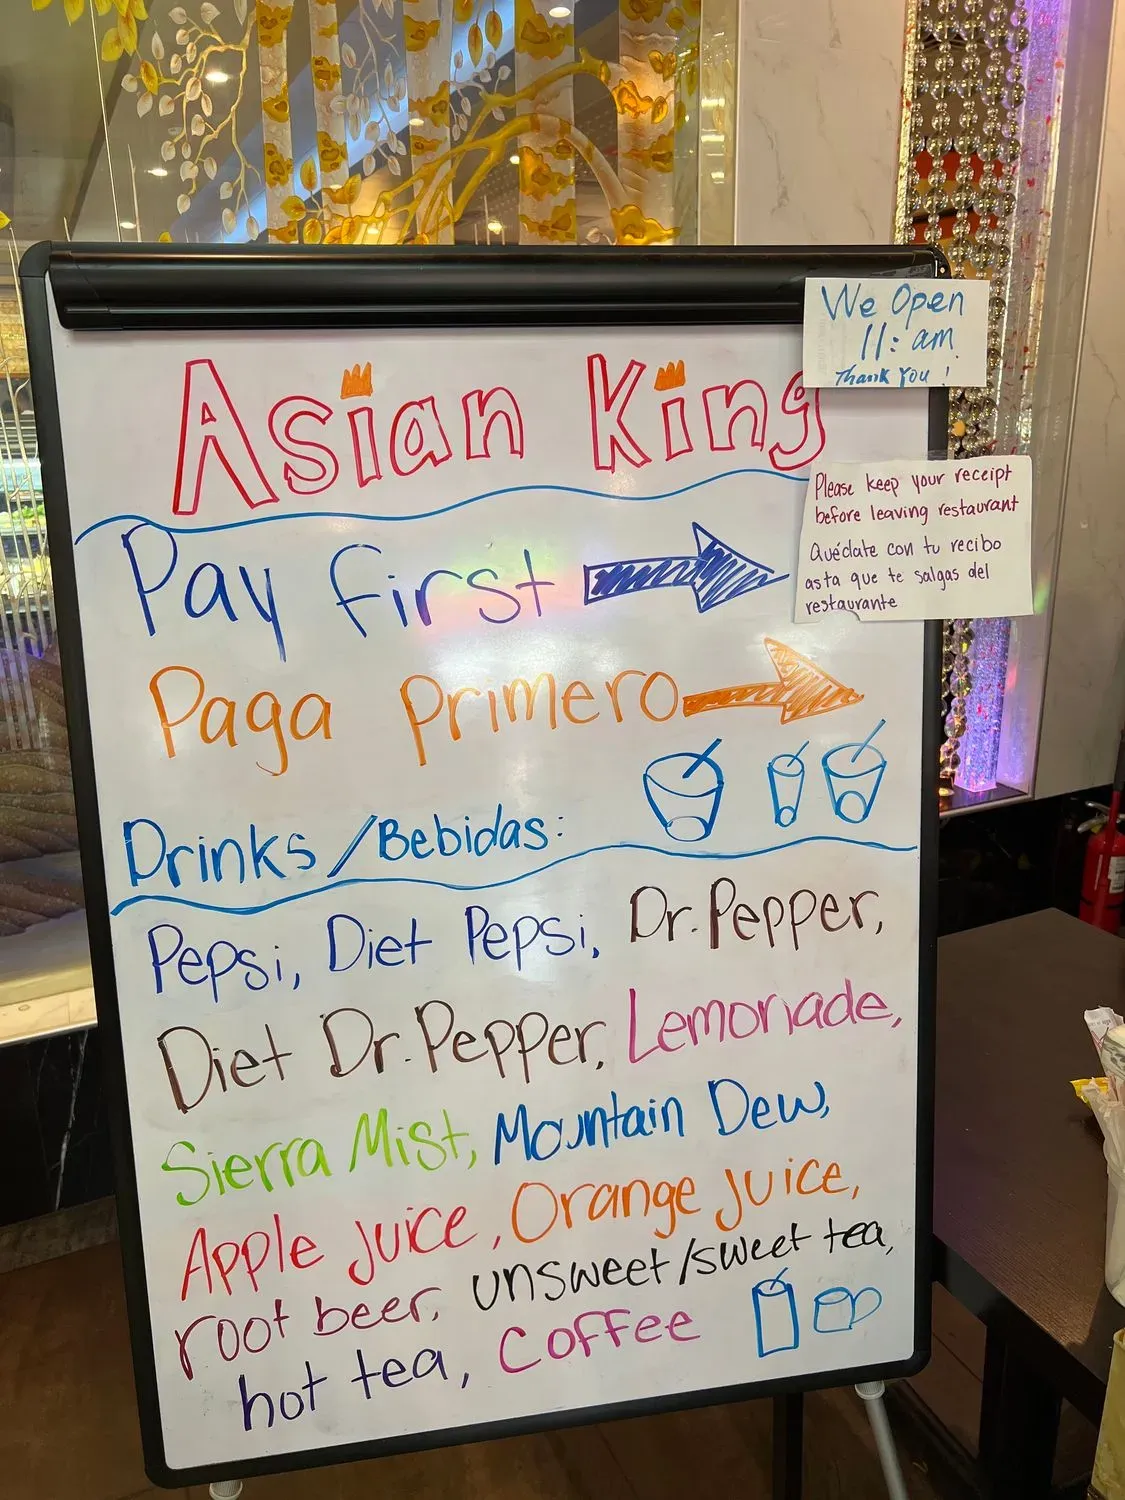 We Open
11: am
Thank You !
Asian King
Please keep your receipt
before leaving restaurant
Quédate con tu recibo
asta que te salgas del
restaurante
Pay first
Paga primero
Drinks/Bebidas:
Pepsi, Diet Pepsi, Dr. Pepper,
Diet Dr. Pepper, Lemonade,
Sierra Mist, Mountain Dew,
Apple juice, Orange juice,
root beer, unsweet/sweet tea,
hot tea, coffee